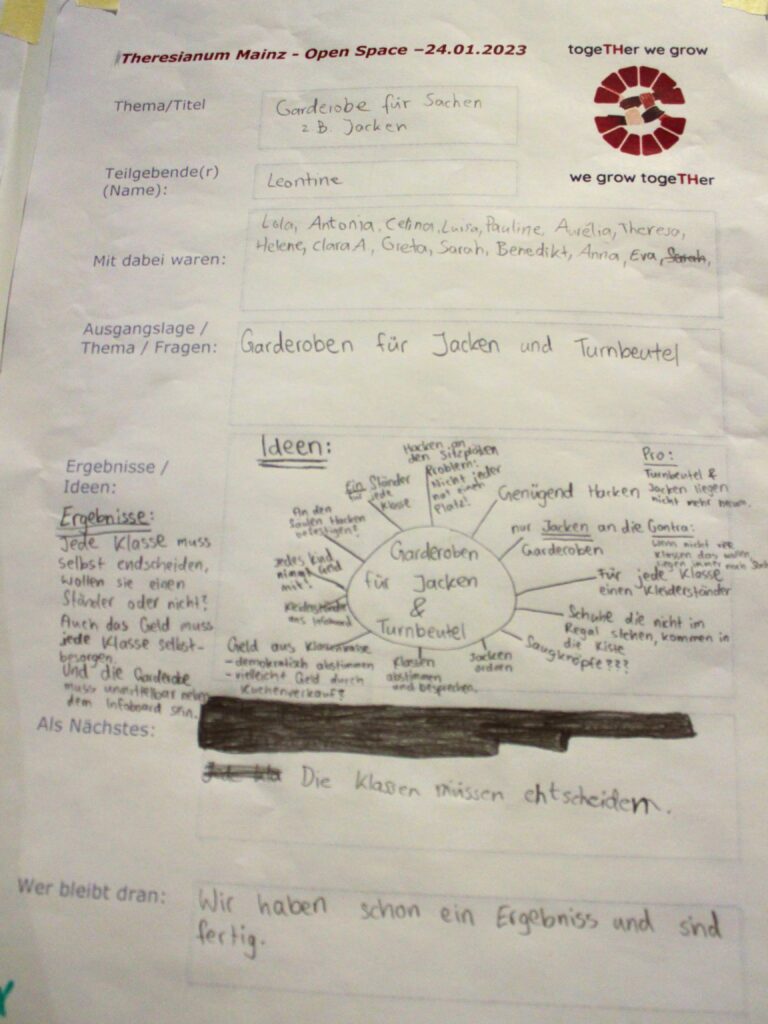 Theresianum Mainz - Open Space –24.01.2023
togeTHer we grow
we grow togeTHer
Thema/Titel
Garderobe für Sachen
z.B. Jacken
Teilgebende(r)
(Name):
Leontine
Mit dabei waren:
Lola, Antonia, Celina, Luisa, Pauline, Aurélia, Theresa,
Helene, Clara A, Greta, Sarah, Benedikt, Anna, Eva, Sarah,
Ausgangslage /
Thema / Fragen:
Garderoben für Jacken und Turnbeutel
Ergebnisse /
Ideen:
Ergebnisse:
Jede Klasse muss
selbst endscheiden,
wollen sie einen
Ständer oder nicht?
Auch das Geld muss
jede Klasse selbst-
besorgen.
Und die Garderobe
muss unmittelbar neben
dem Infoboard sein.
Ideen:
Garderoben
für Jacken
&
Turnbeutel
Hacken an
den Sitzplätzen
Problem:
Nicht jeder
hat einen
Platz!
Ein Ständer
für jede
Klasse
An den
Säulen Hacken
befestigen?
Jedes Kind
nimmt Geld
mit!
Kleiderständer
ans Infoboard
Geld aus Klassenkasse
- demokratisch abstimmen
- vielleicht Geld durch
Kuchenverkauf?
Klassen
abstimmen
und besprechen.
Jacken
ordern
Saugknöpfe???
Schuhe die nicht im
Regal stehen, kommen in
die Kiste
Für jede Klasse
einen Kleiderständer
nur Jacken an die
Garderoben
Genügend Hacken
Pro:
Turnbeutel &
Jacken liegen
nicht mehr herum.
Contra:
Wenn nicht
Klassen das wollen,
liegen immer noch
Als Nächstes:
Die Klassen müssen entscheidem.
Wer bleibt dran:
Wir haben schon ein Ergebniss und sind
fertig.